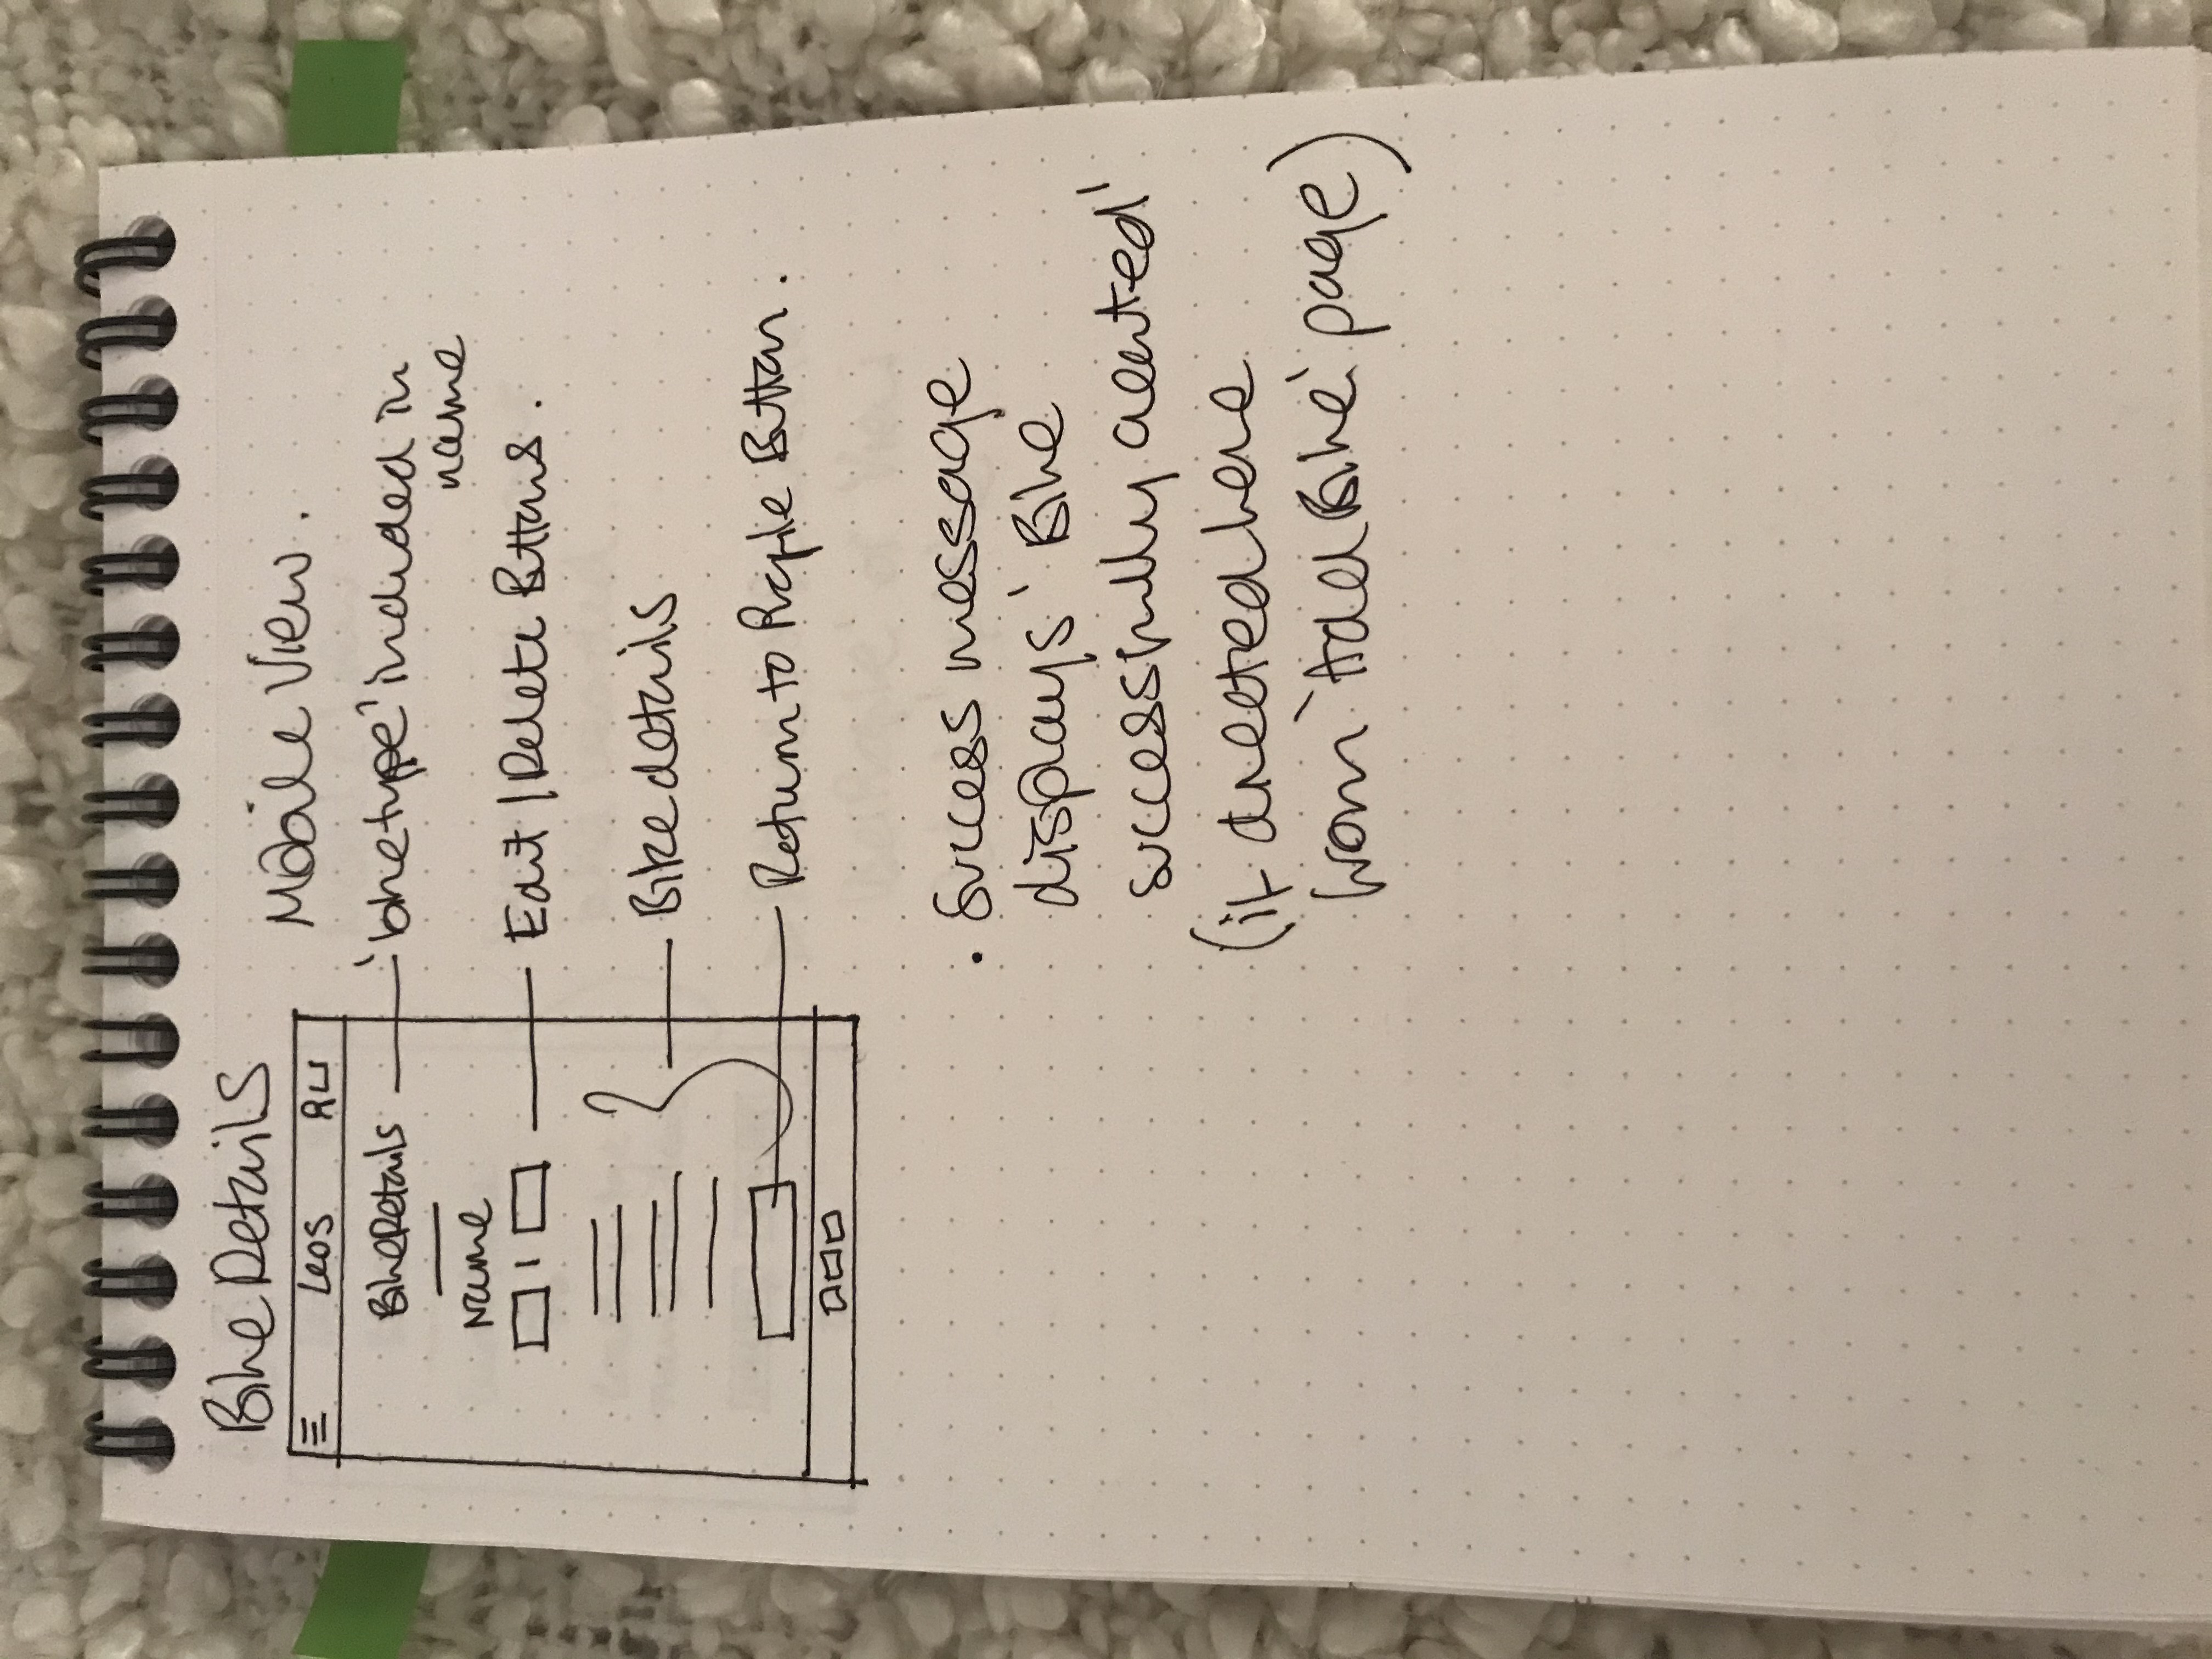 Bike Details
Mobile View.
Leos
Bike Details
'biketype' included in
name
Name
Edit / Delete Buttons.
Bike details
Return to Profile Button.
. Success message
displays 'Bike
successfully created'
(if directed here
from 'Add Bike' page)